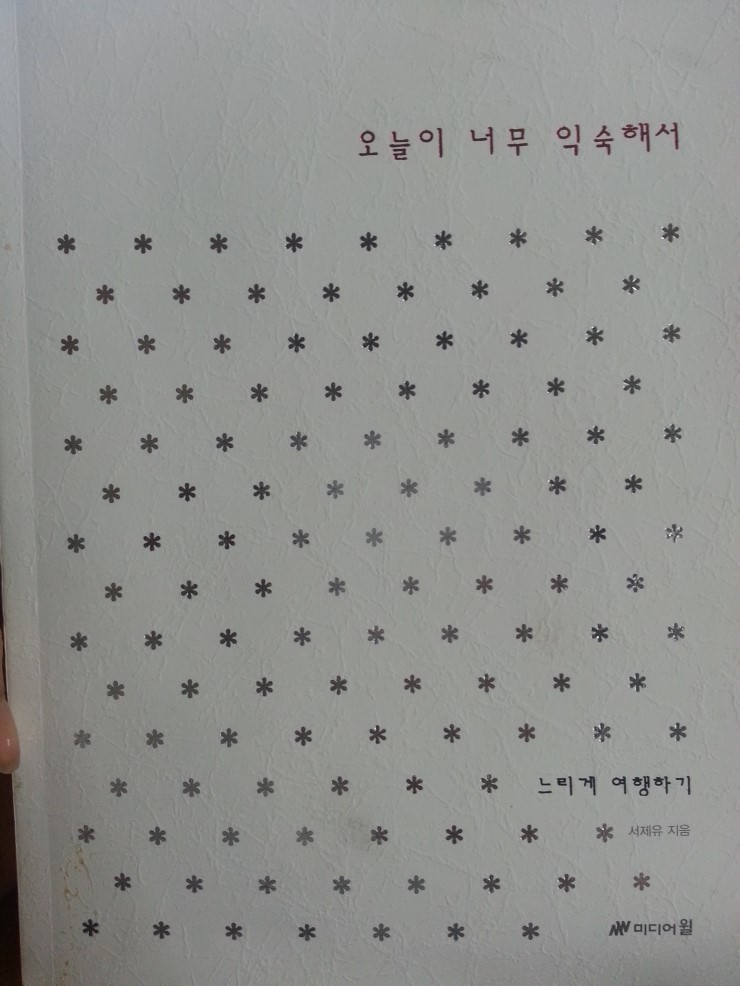 오늘이 너무 익숙해서
느리게 여행하기
서제유 지음
미디어윌